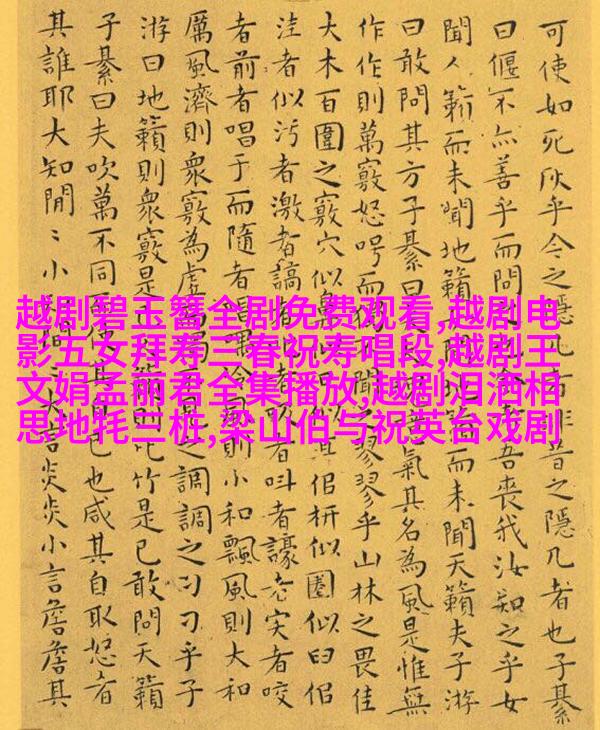 可使如死灰乎今之隱几者非昔之隱几者也子綦
曰偃不亦善乎而問吾喪我汝知之乎女
聞人籟而未聞地籟而未聞天籟夫子游
曰敢問其方子綦曰噫氣其名為風是惟無
作作則萬竅怒呺而聞之翏翏乎山林之畏佳
大木百圍之竅穴似鼻佀枅似圈似臼佀
洼者似污者激者謞者叫者譹者宎者咬
者前者唱于而隨者唱喁則小和飄風則大和
厲風濟則衆竅為虛之調調之刁刁乎子
游曰地籟則衆竅是比竹是已敢問天籟
子綦曰夫吹萬不同其自已也咸其自取怒者
其誰耶大知閒〻小閒〻大言炎炎小言詹詹其
越剧碧玉簪全剧免费观看,越剧电
影五女拜寿三春祝寿唱段,越剧王
文娟孟丽君全集播放,越剧泪洒相
思地牦三桩,梁山伯与祝英台戏剧